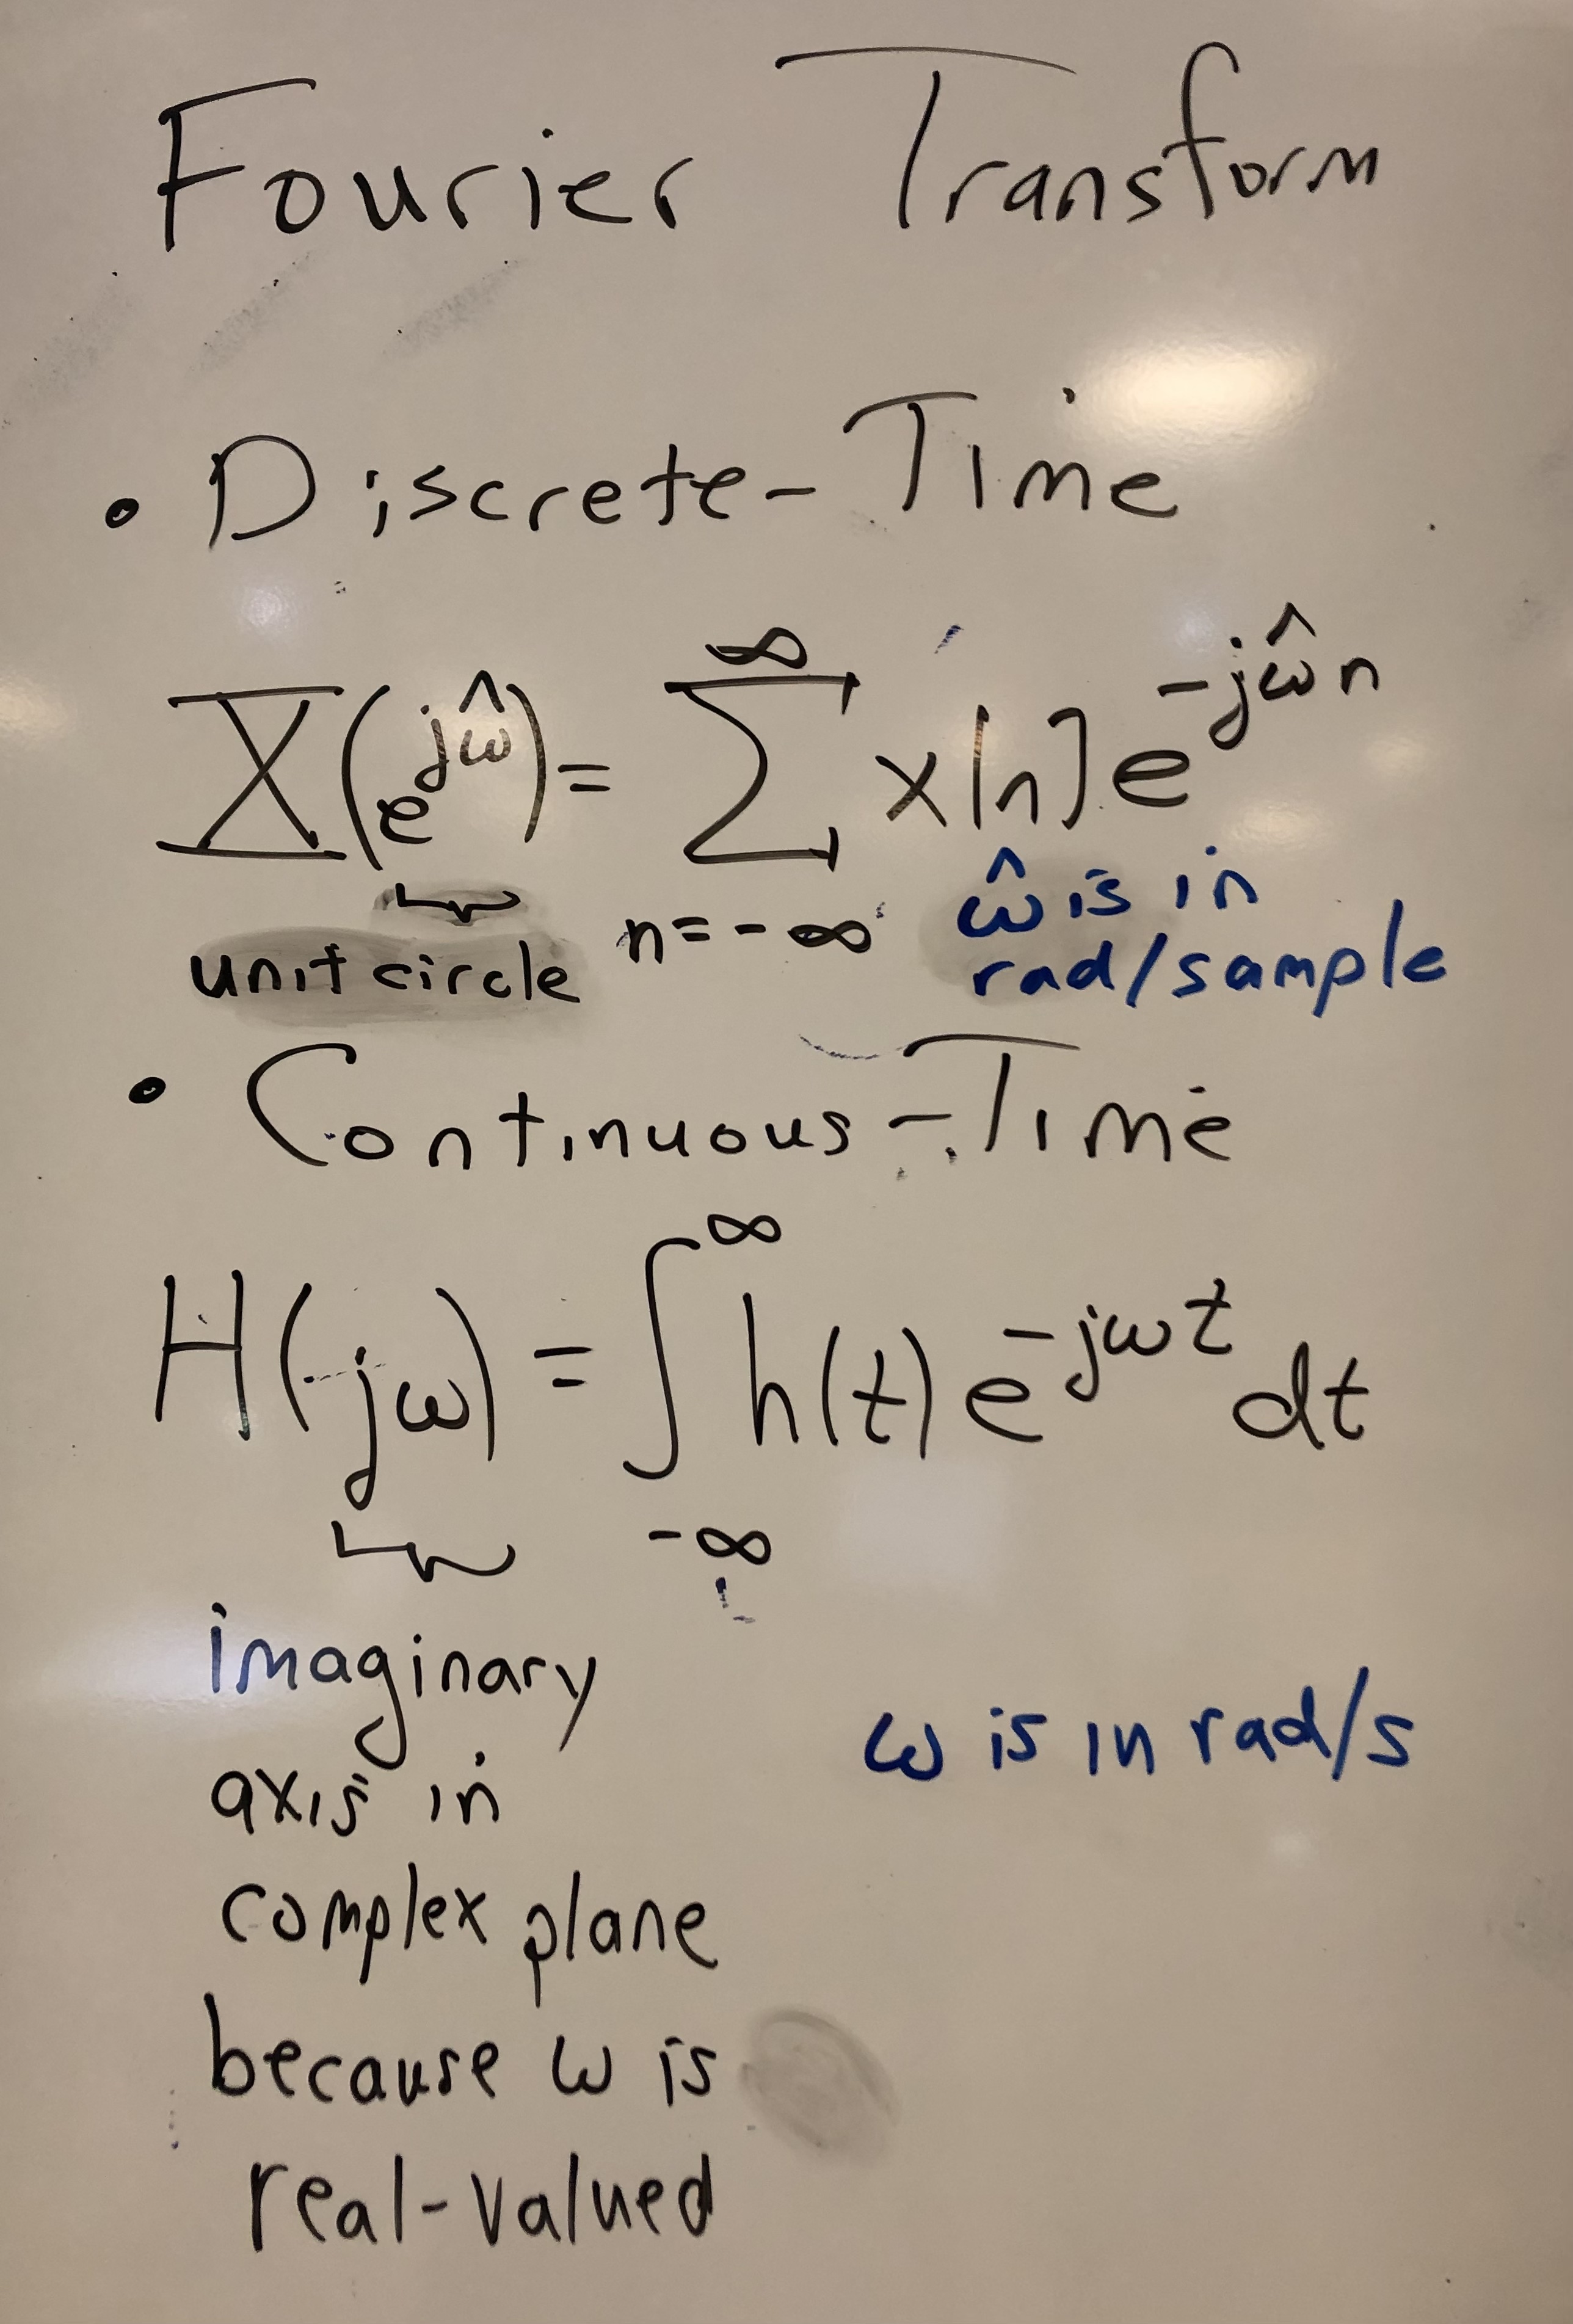 Fourier Transform
• Discrete-Time
X(e^{jω̂}) = ∑_{n=-∞}^{∞} x[n] e^{-jω̂n}
unit circle
ω̂ is in
rad/sample
• Continuous-Time
H(jω) = ∫_{-∞}^{∞} h(t) e^{-jωt} dt
imaginary
axis in
complex plane
because ω is
real-valued
ω is in rad/s